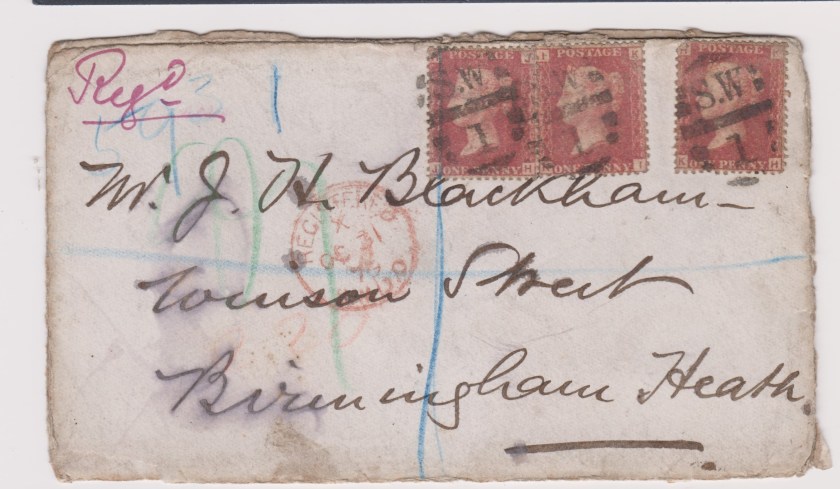 Regd
POSTAGE POSTAGE POSTAGE
S.W S.W
1 1 1
ONE PENNY ONE PENNY ONE PENNY
Mr. J. H. Blackham
REGISTERED
Tomson Street
Birmingham Heath.